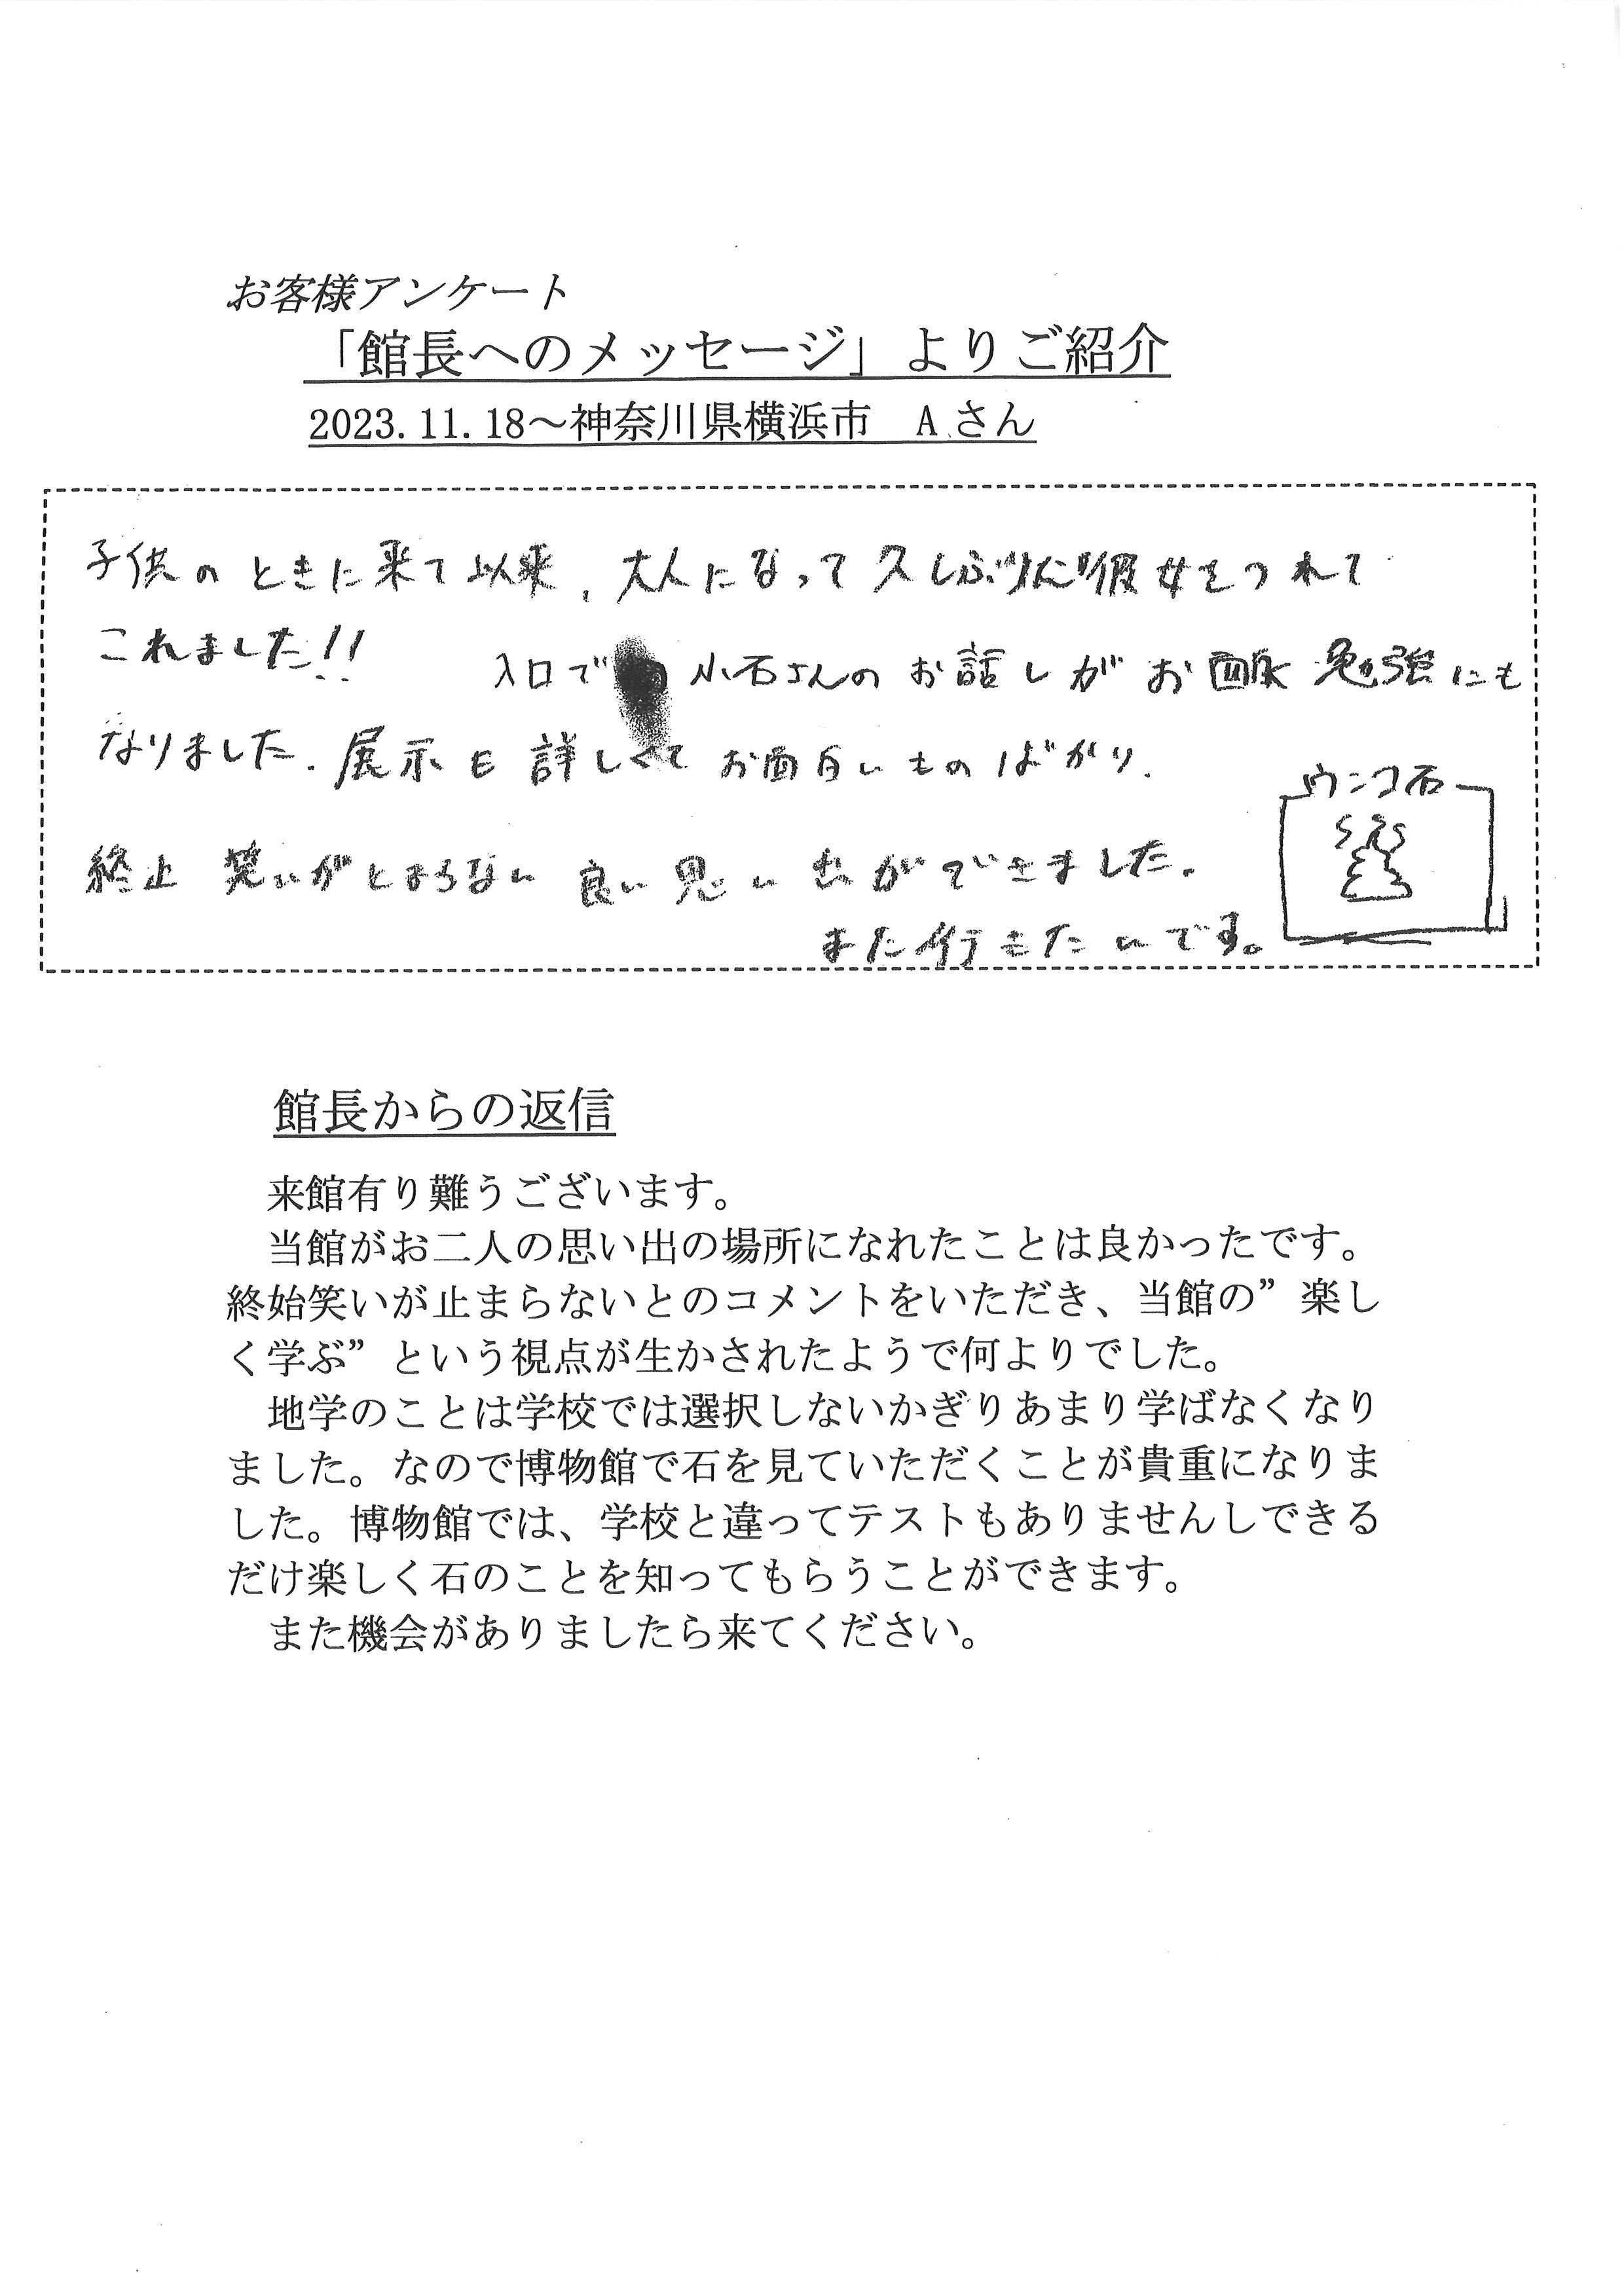 お客様アンケート
「館長へのメッセージ」よりご紹介
2023.11.18～神奈川県横浜市　Aさん
子供のときに来て以来、大人になって久しぶりに彼女をつれて
これました!!　入口で　小石さんのお話しがお面白　勉強にも
なりました．展示も詳しくて お面白いものばかり．
ウンコ石
終止 笑いがとまらない 良い思い出ができました。
また行きたいです。
館長からの返信
来館有り難うございます。
当館がお二人の思い出の場所になれたことは良かったです。
終始笑いが止まらないとのコメントをいただき、当館の”楽し
く学ぶ”という視点が生かされたようで何よりでした。
地学のことは学校では選択しないかぎりあまり学ばなくなり
ました。なので博物館で石を見ていただくことが貴重になりま
した。博物館では、学校と違ってテストもありませんしできる
だけ楽しく石のことを知ってもらうことができます。
また機会がありましたら来てください。